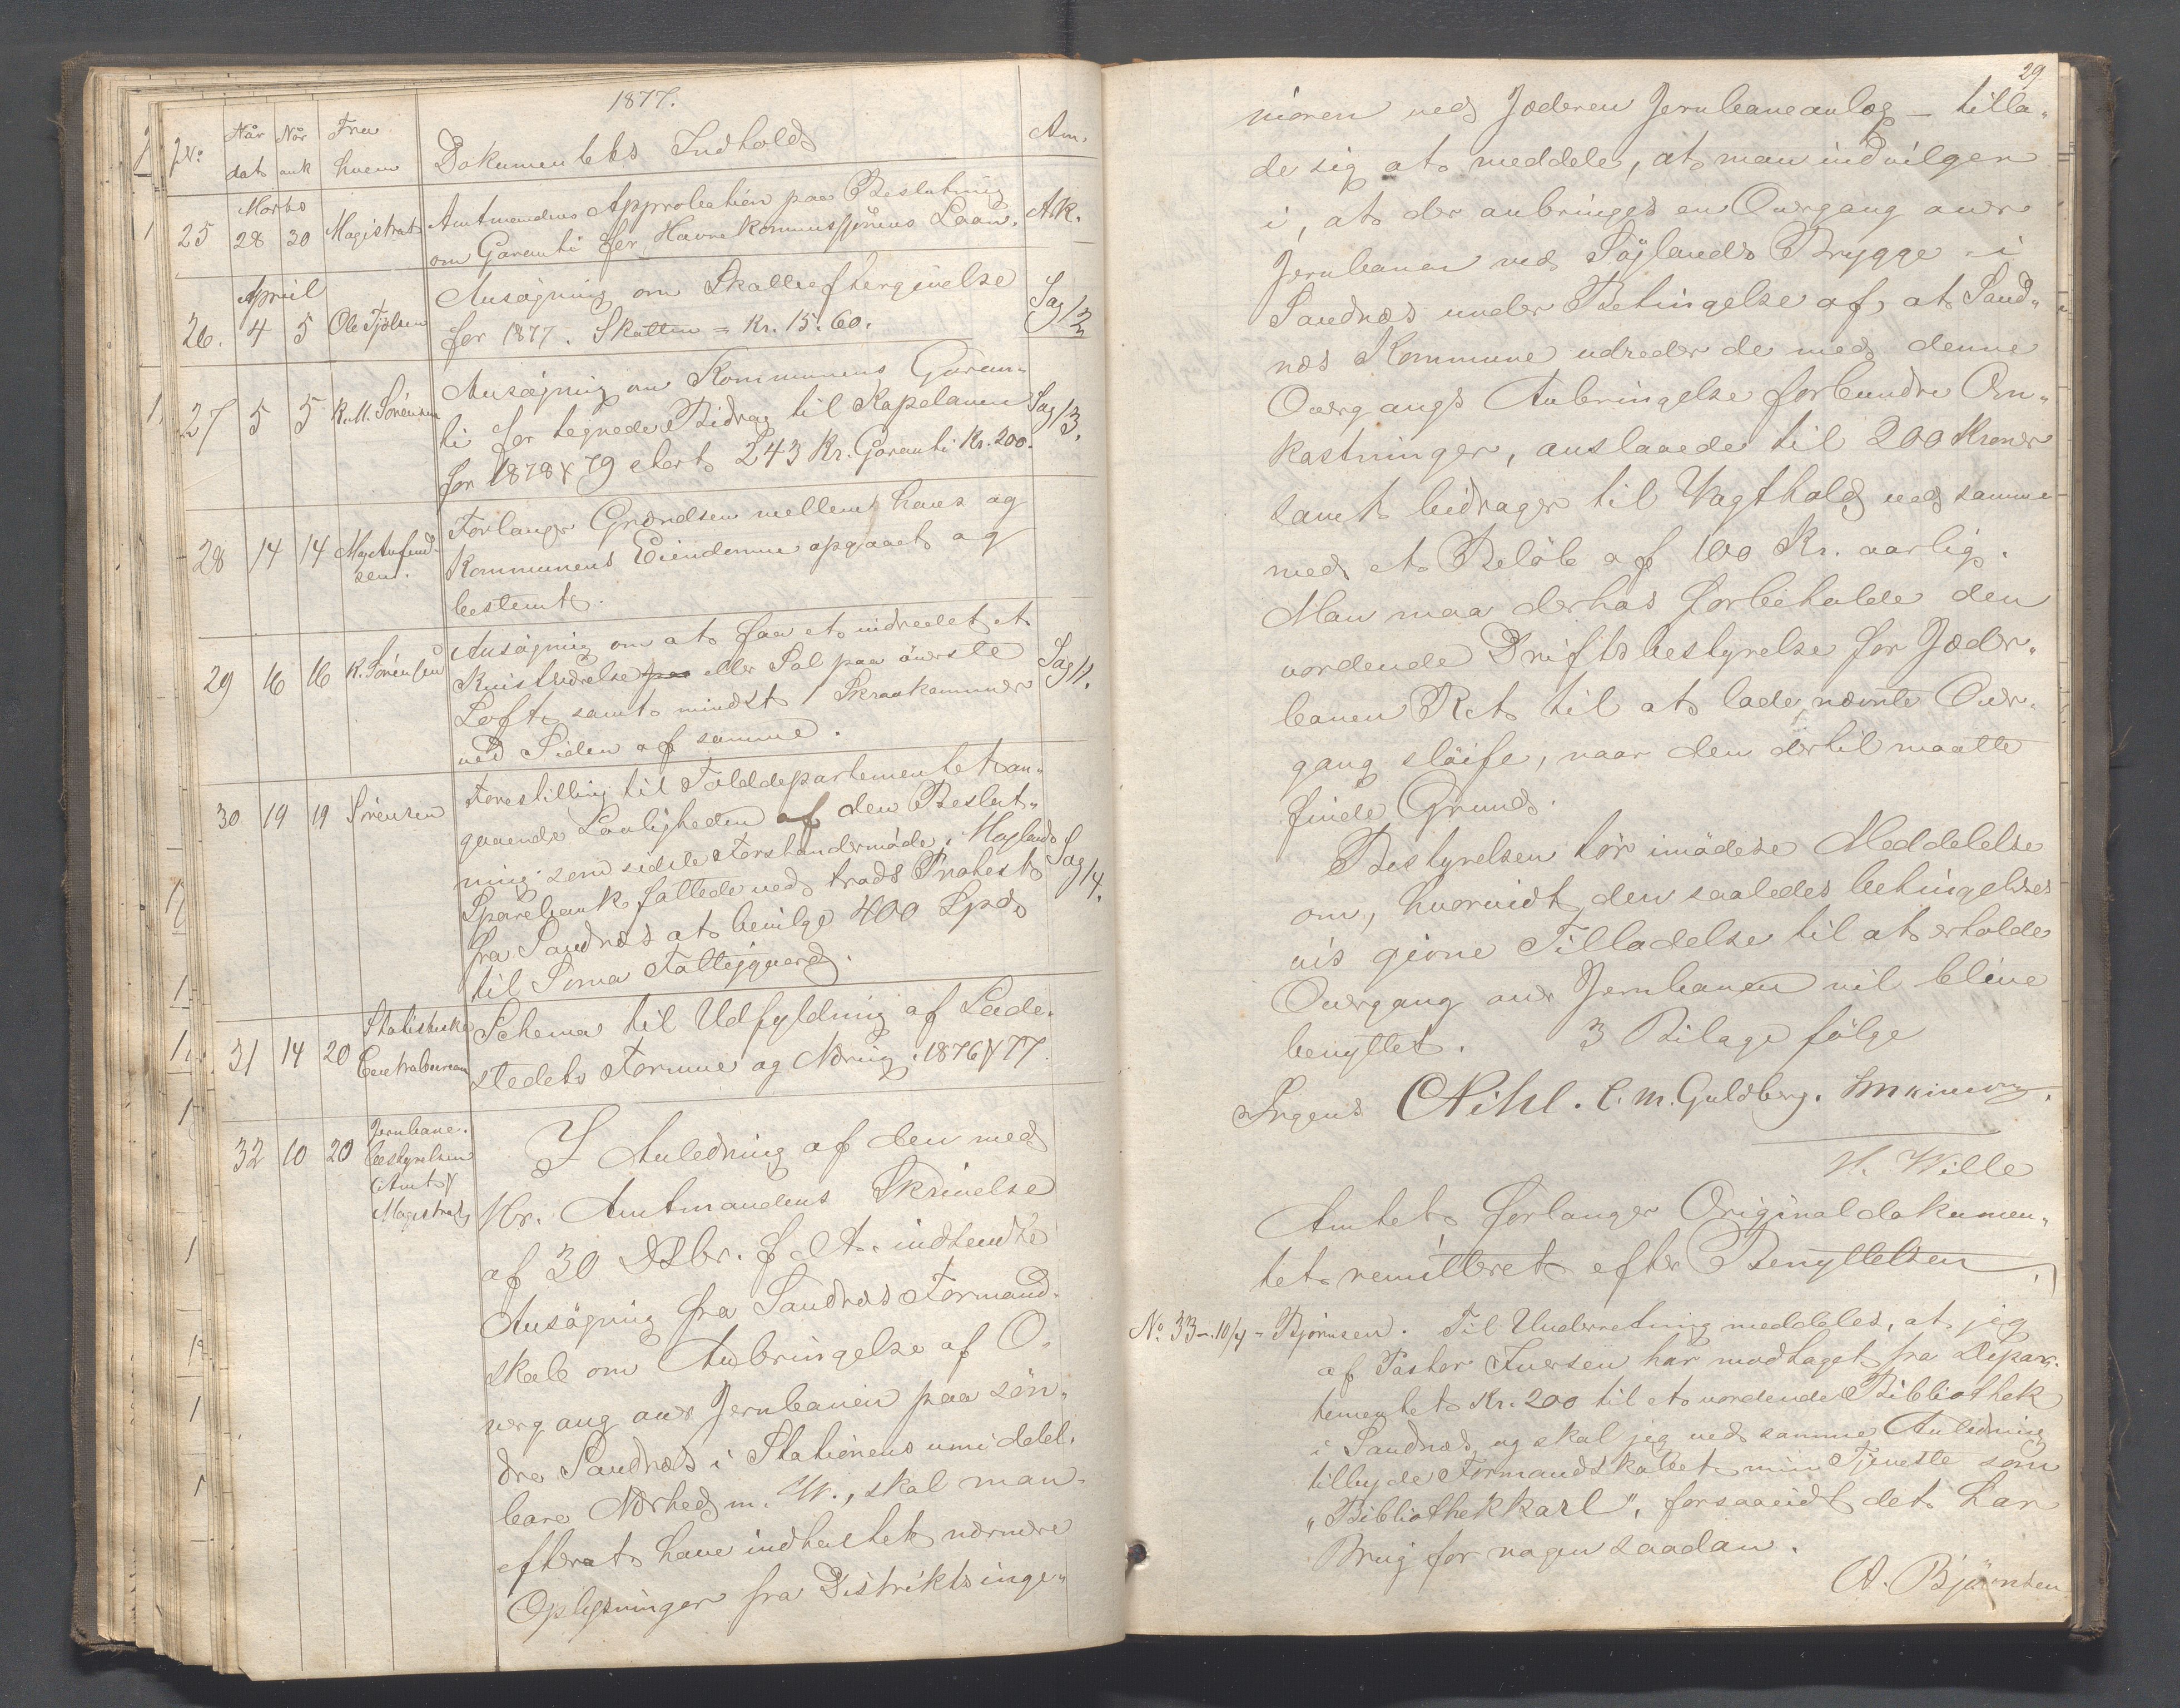 1877.
No Når dat Når ank Fra hvem Dokumentets Indhold Anm.
Marts
25 28 30 Magistrat Amtmandens Approbation paa Beslutning Ak.
om Garanti for Havnekommissjonens Laan.
April
26. 4 5 Ole Tjølsen Ansøgning om Skatteeftergivelse Sag 12
for 1877. Skatten = Kr. 15.60.
27 5 5 K. M. Sørensen Ansøgning om Kommunens Garan- Sag 13.
ti for tegnede Bidrag til Kapelanen
for 1878 & 79 stort 243 Kr. Garanti Kr. 200.
28 14 14 Forlanger Grændsen mellem hans og
Kommunens Eiendomme opgaaet og
bestemt.
29 16 16 K. Sørensen Ansøgning om at faa et indredet et Sag 11.
Kvistværelse paa eller Sal paa øverste
Loft, samt mindst 1 Skraakammer
ved Siden af samme.
30 19 19 Sørensen Forestilling til Folddepartementet an-
gaaende Lovligheden af den Beslut-
ning som sidste Forstandermøde i Høglands Sag 14.
Sparebank fattede ved trods Protest
fra Sandnæs at bevilge 400 Spd.
til Soma Fattiggaard.
31 14 20 Statistiske Centralbureau Schema til Udfyldning af Lade-
stedets Formue og Næring. 1876 & 77.
32 10 20 Jernbane- bestyrelsen (Amt & Magistrat) I Anledning af den med
Hr. Amtmandens Skrivelse
af 30 Dsbr. f. A. indsendte
Ansøgning fra Sandnæs Formand-
skab om Anbringelse af O-
vergang over Jernbanen paa søn-
dre Sandnæs i Stationens umiddel-
bare Nærhed m. V., skal man-
efterat have indhentet nærmere
Oplysninger fra Distriktsinge-
29.
niøren ved Jæderen Jernbaneanlæg – tilla-
de sig at meddele, at man indvilger
i, at der anbringes en Overgang over
Jernbanen ved Søylands Brygge i
Sandnæs under Betingelse af, at Sand-
næs Kommune udreder de med denne
Overgangs Anbringelse forbundne Om-
kostninger, anslaaede til 200 Kroner
samt bidrager til Vagthold ved samme
med et Beløb af 100 Kr. aarlig.
Man maa derhos forbeholde den
vordende Driftsbestyrelse for Jæder-
banen Ret til at lade nævnte Over-
gang sløife, naar den dertil maatte
finde Grund.
Bestyrelsen tør imødese Meddelelse
om, hvorvidt den saaledes betingelses-
vis givne Tilladelse til at erholde
Overgang over Jernbanen vil blive
benyttet. 3 Bilage følge
Ærgens C Pihl. C. M. Guldberg.
H. Wille
Amtet forlanger Originaldokumen-
tet remitteret efter Benyttelsen.
No. 33 – 10/4 – Bjørnsen. Til Underretning meddeles, at jeg
af Pastor Iversen har modtaget fra Depar-
tementet Kr. 200 til et vordende Bibliothek
i Sandnæs og skal jeg ved samme Anledning
tilbyde Formandskabet min Tjeneste som
"Bibliothekkarl", forsaavidt det har
Brug for nogen saadan.
A. Bjørnsen